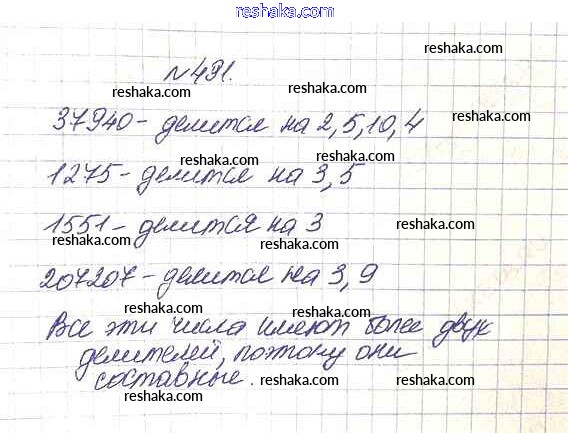 reshaka.com
reshaka.com
reshaka.com
№491.
reshaka.com reshaka.com reshaka.com
37940 - делится на 2, 5, 10, 4
reshaka.com reshaka.com reshaka.com
1275 - делится на 3, 5
1551 - делится на 3
reshaka.com reshaka.com reshaka.com
207207 - делится на 3, 9
reshaka.com reshaka.com reshaka.com
Все эти числа имеют более двух
делителей, поэтому они
reshaka.com reshaka.com reshaka.com
составные.
reshaka.com reshaka.com reshaka.com